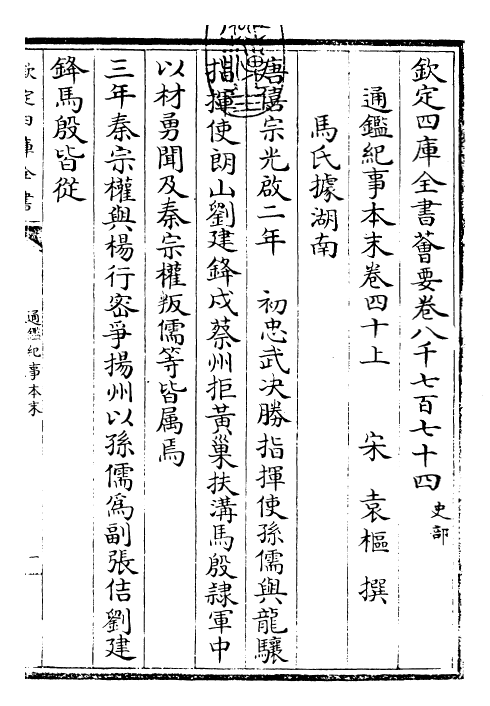 欽定四庫全書薈要卷八千七百七十四 史部
通鑑紀事本末卷四十上 宋 袁樞 撰
馬氏據湖南
唐僖宗光啟二年 初忠武決勝指揮使孫儒與龍驤
指揮使朗山劉建鋒戍蔡州拒黃巢扶溝馬殷隸軍中
以材勇聞及秦宗權叛儒等皆属焉
三年秦宗權與楊行密爭揚州以孫儒為副張佶劉建
鋒馬殷皆從
欽定四庫全書
通鑑紀事本末
一